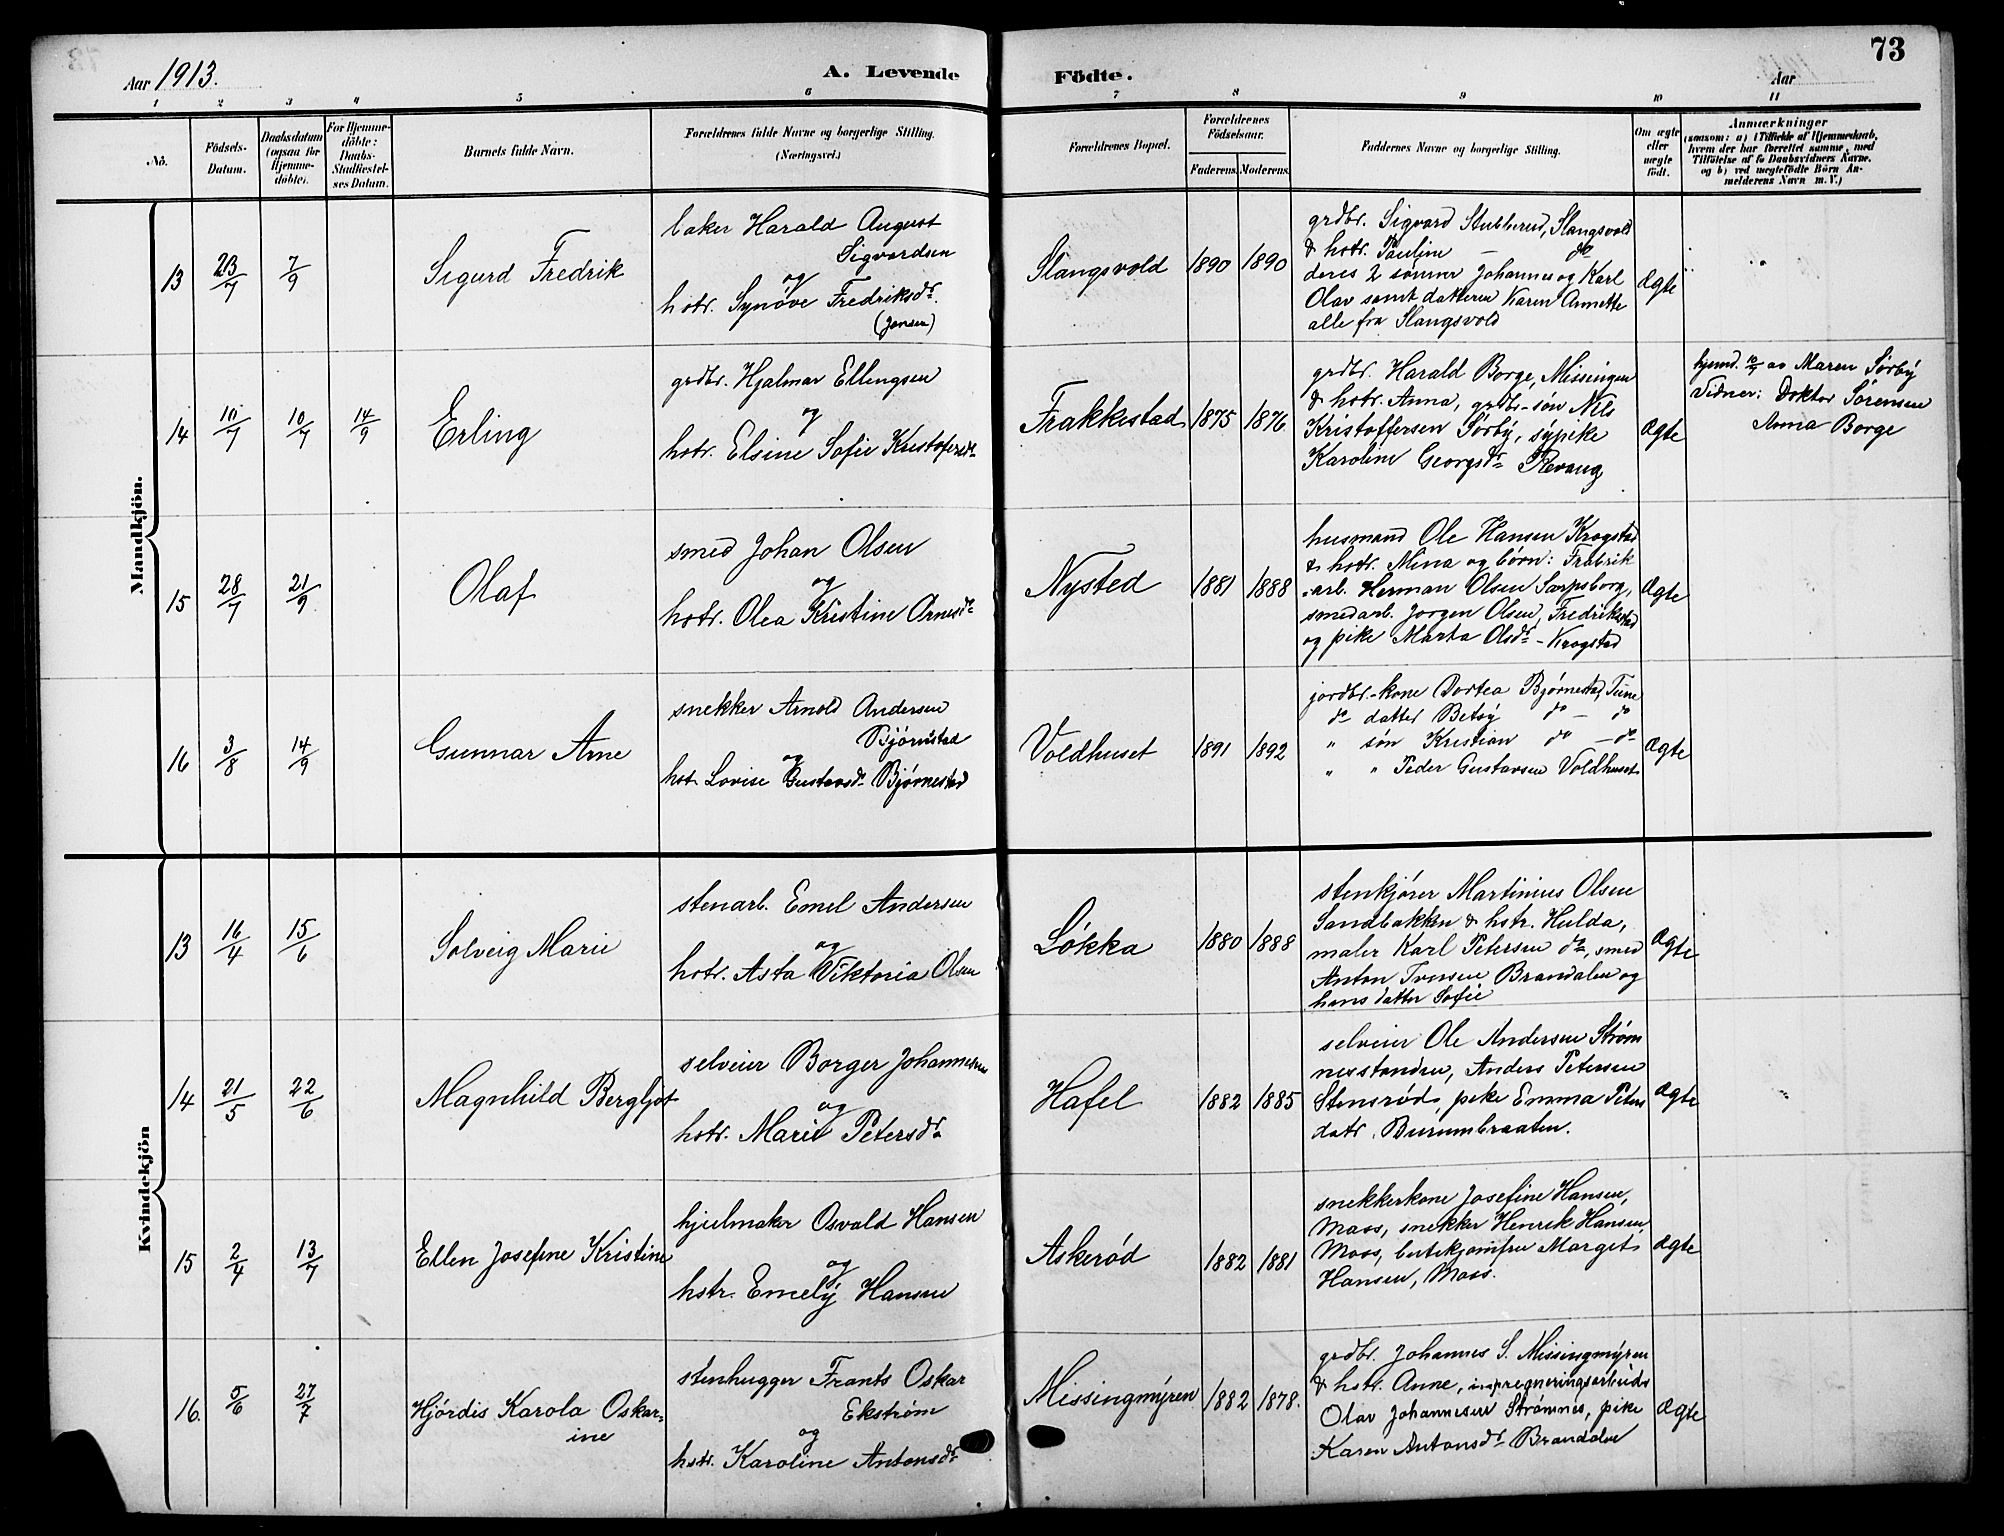 Aar 1913.
A. Levende
Födte.
Aar
73
1 2 3 4 5 6 7 8 9 10 11
No.
Födsels-
Datum.
Daabsdatum
(ogsaa for
Hjemme-
döbte).
For Hjemme-
döbte:
Daabs-
Stadfæstel-
ses Datum.
Barnets fulde Navn.
Forældrenes fulde Navne og borgerlige Stilling.
(Næringsvei.)
Forældrenes Bopæl.
Forældrenes
Födselsaar.
Faderens.
Moderens.
Faddernes Navne og borgerlige Stilling.
Om ægte
eller
uægte
födt.
Anmærkninger
(saasom: a) i Tilfælde af Hjemmedaab,
hvem der har forrettet samme, med
Tilföielse af to Daabsvidners Navne,
og b) ved uægtefödte Börn An-
melderens Navn m. V.)
Mandkjön.
13
23/7
7/9
Sigurd Fredrik
baker Harald August
Sigvardsen
og
hstr. Synöve Fredriksdr.
(Jensen)
Slangsvold
1890
1890
grdbr. Sigvard Stubberud, Slangsvold
& hstr. Pauline — do
deres 2 sønner Johannes og Karl
Olav samt datteren Karen Annette
alle fra Slangsvold
Ægte
14
10/7
10/7
14/9
Erling
grdbr. Hjalmar Ellingsen
og
hstr. Elsine Sofie Kristofersdr.
Frakkestad
1875
1876
grdbr. Harald Borge, Missingen
& hstr. Anna, grdbr-søn Nils
Kristoffersen Sørby, sypike
Karoline Georgsdr. Revaug
Ægte
hjemd. 10/7 av Maren Sørby
Vidner: Doktor Sørensen
Anna Borge
15
28/7
21/9
Olaf
smed Johan Olsen
og
hstr. Olea Kristine Arnesdr.
Nysted
1881
1888
husmand Ole Hansen Krogstad
& hstr. Mina og børn: Fabrik
arb. Herman Olsen Sarpsborg,
smedarb. Jørgen Olsen, Fredrikstad
og pike Marta Olsdr. - Krogstad
Ægte
16
3/8
14/9
Gunnar Arne
snekker Arnold Andersen
Bjørnstad
og
hst. Lovise Gustavsdr. Bjørnestad
Voldhuset
1891
1892
jordbr.-kone Dortea Bjørnestad, Tune
do datter Betsy do — do
" søn Kristian do — do
" " Peder Gustavsen Voldhuset
Ægte
Kvindekjön
13
16/4
15/6
Solveig Marie
stenarb. Emel Andersen
og
hstr. Asta Viktoria Olsen
Løkka
1880
1888
stenkjører Martinius Olsen
Sandbakken & hstr. Hulda,
maler Karl Petersen do, smed
Anton Iversen Brandalen og
hans datter Sofie
Ægte
14
21/5
22/6
Magnhild Bergljot
selveier Borger Johannesen
og
hstr. Marie Petersdr.
Hafel
1882
1885
selveier Ole Andersen Strøm
nesstanden, Anders Petersen
Stensrød, pike Emma Peters
datr. Burumbraaten.
Ægte
15
2/4
13/7
Ellen Josefine Kristine
hjulmaker Osvald Hansen
og
hstr. Emely Hansen
Askerød
1882
1881
snekkerkone Josefine Hansen,
Moss, snekker Henrik Hansen
Moss, butikjomfru Margit
Hansen, Moss.
Ægte
16.
5/6
27/7
Hjördis Karola Oskar-
ine
stenhugger Frants Oskar
Ekstrøm
og
hstr. Karoline Antonsdr.
Missingmyren
1882
1878.
grdbr. Johannes S. Missingmyren
& hstr. Anne, impregneringsarbeids
Olav Johannesen Strømnes, pike
Karen Antonsdr. Brandalen
Ægte